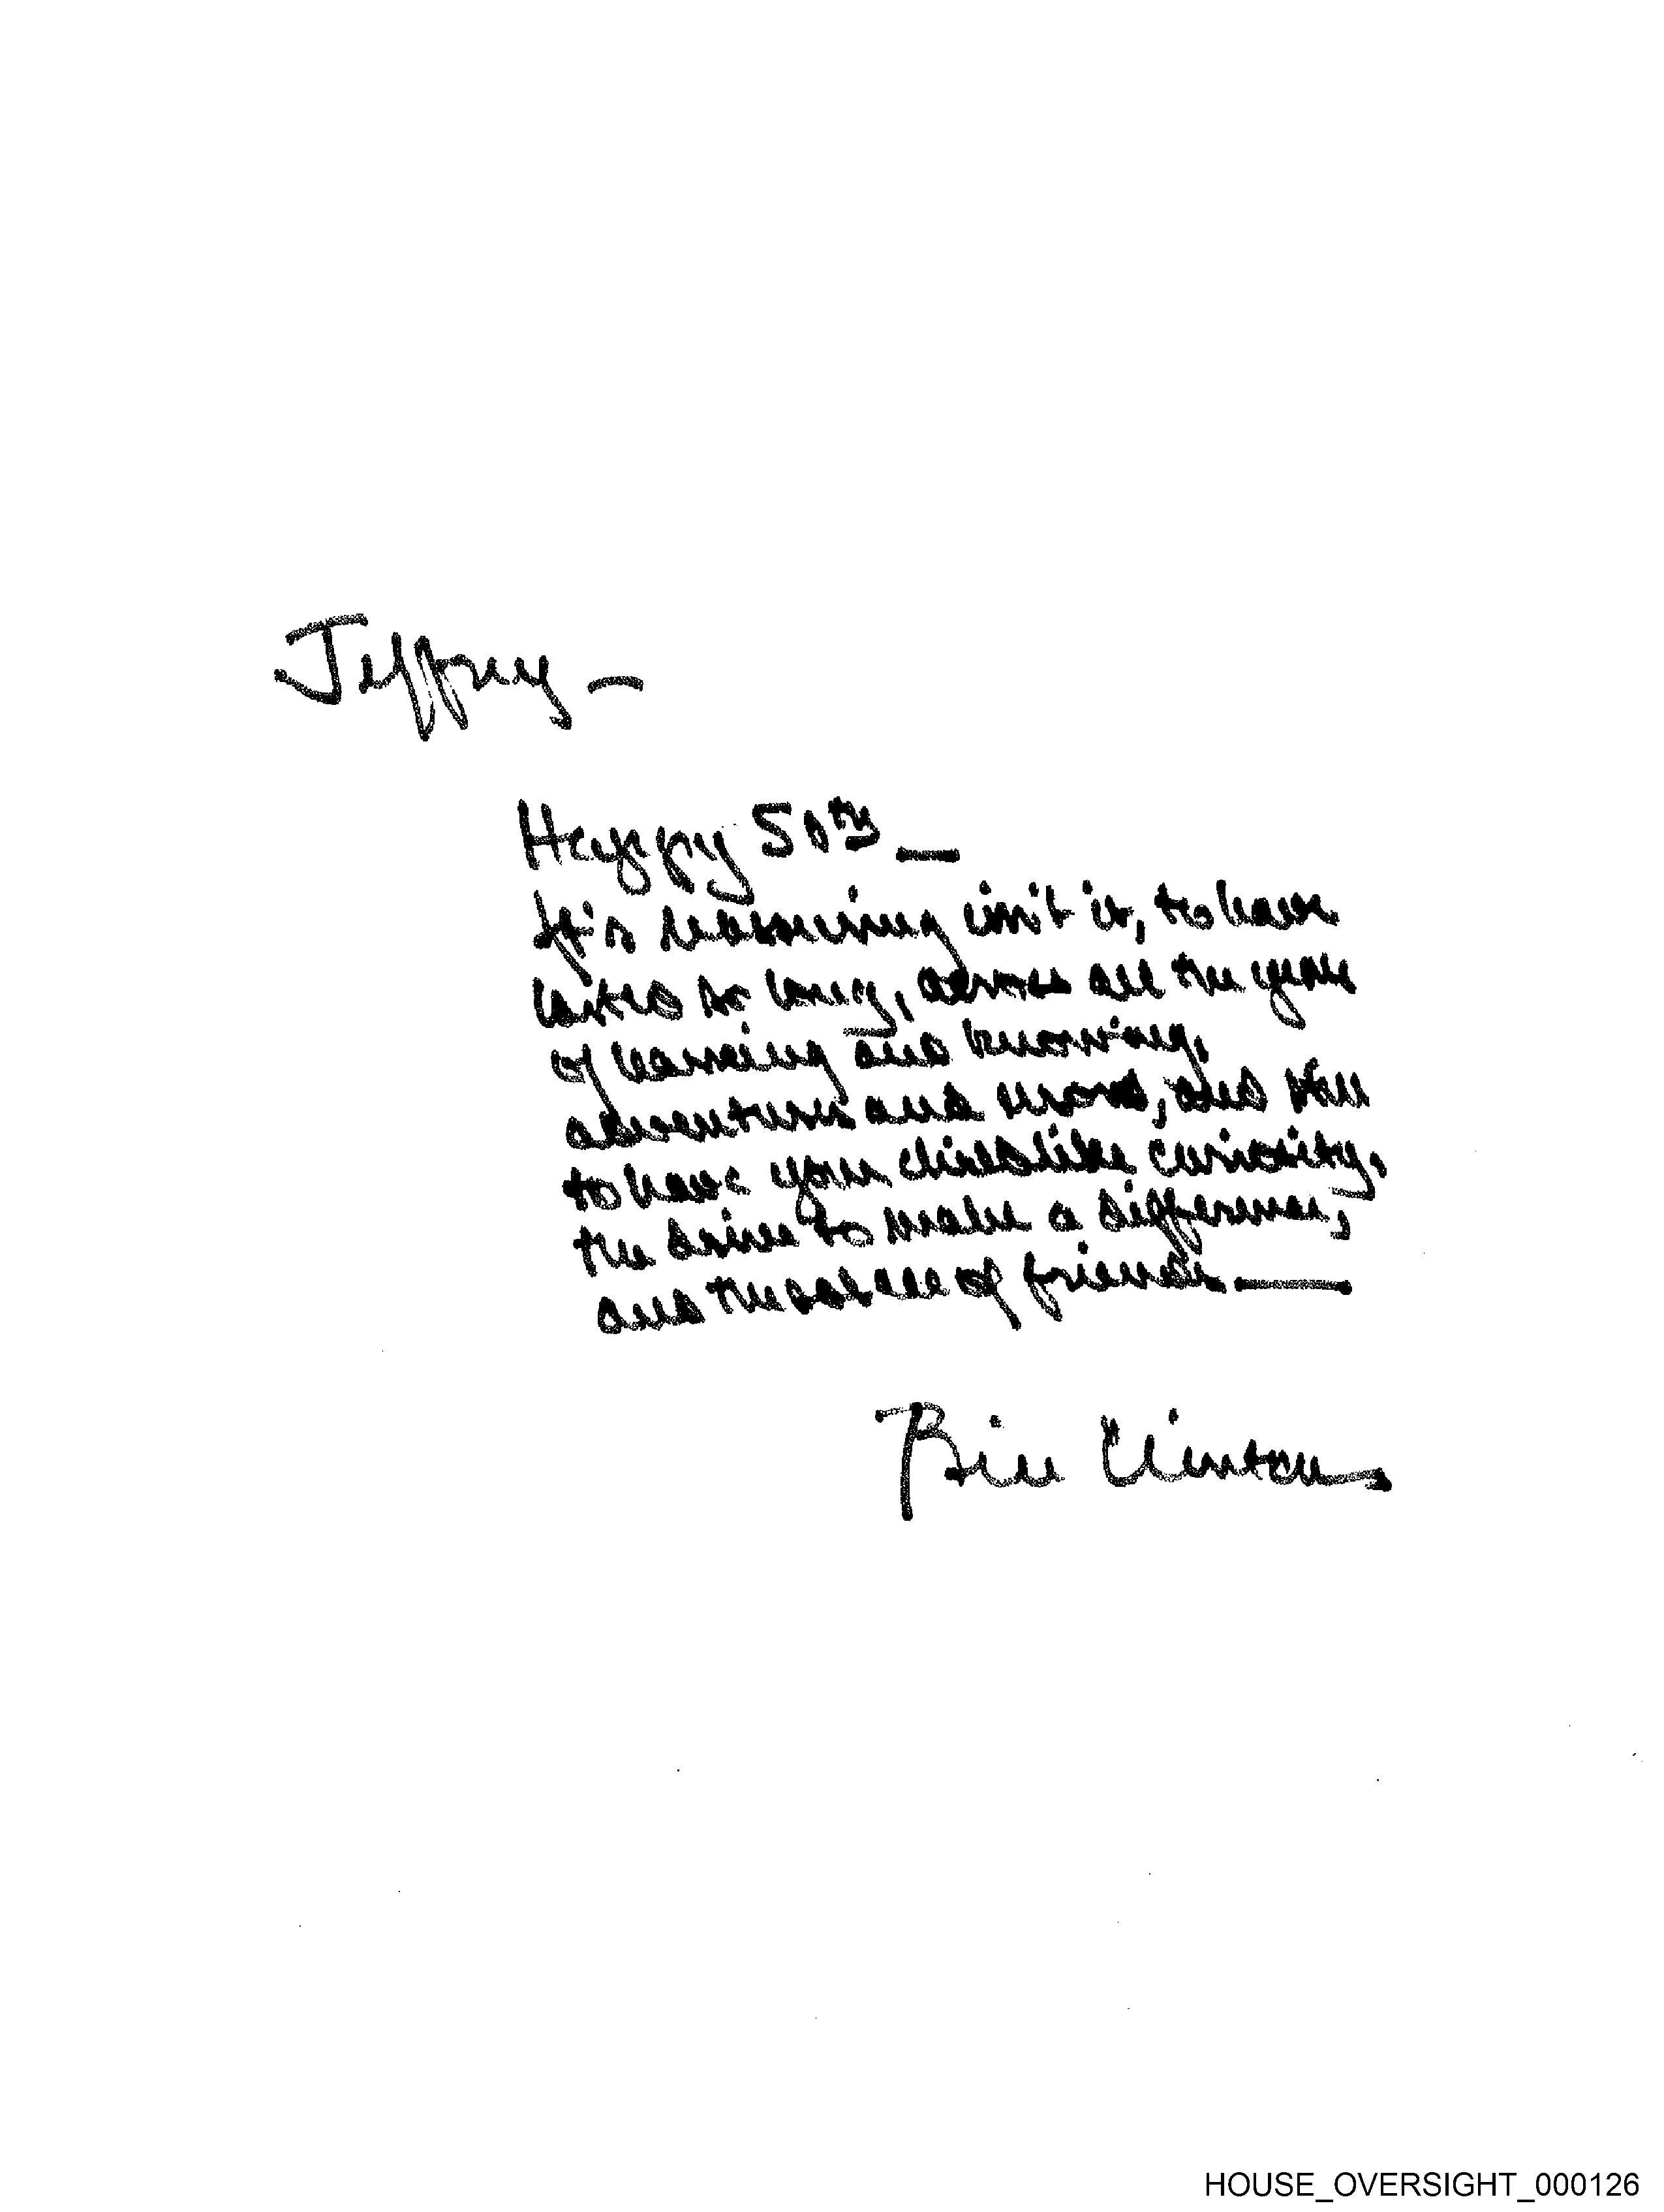 Jeffrey —
Happy 50th —
It's reassuring isn't it, to have
lasted as long, across all the years
of learning and knowing,
adventures and , and still
to have your childlike curiosity,
the drive to make a difference,
and the solace of friends —
Bill Clinton
HOUSE_OVERSIGHT_000126